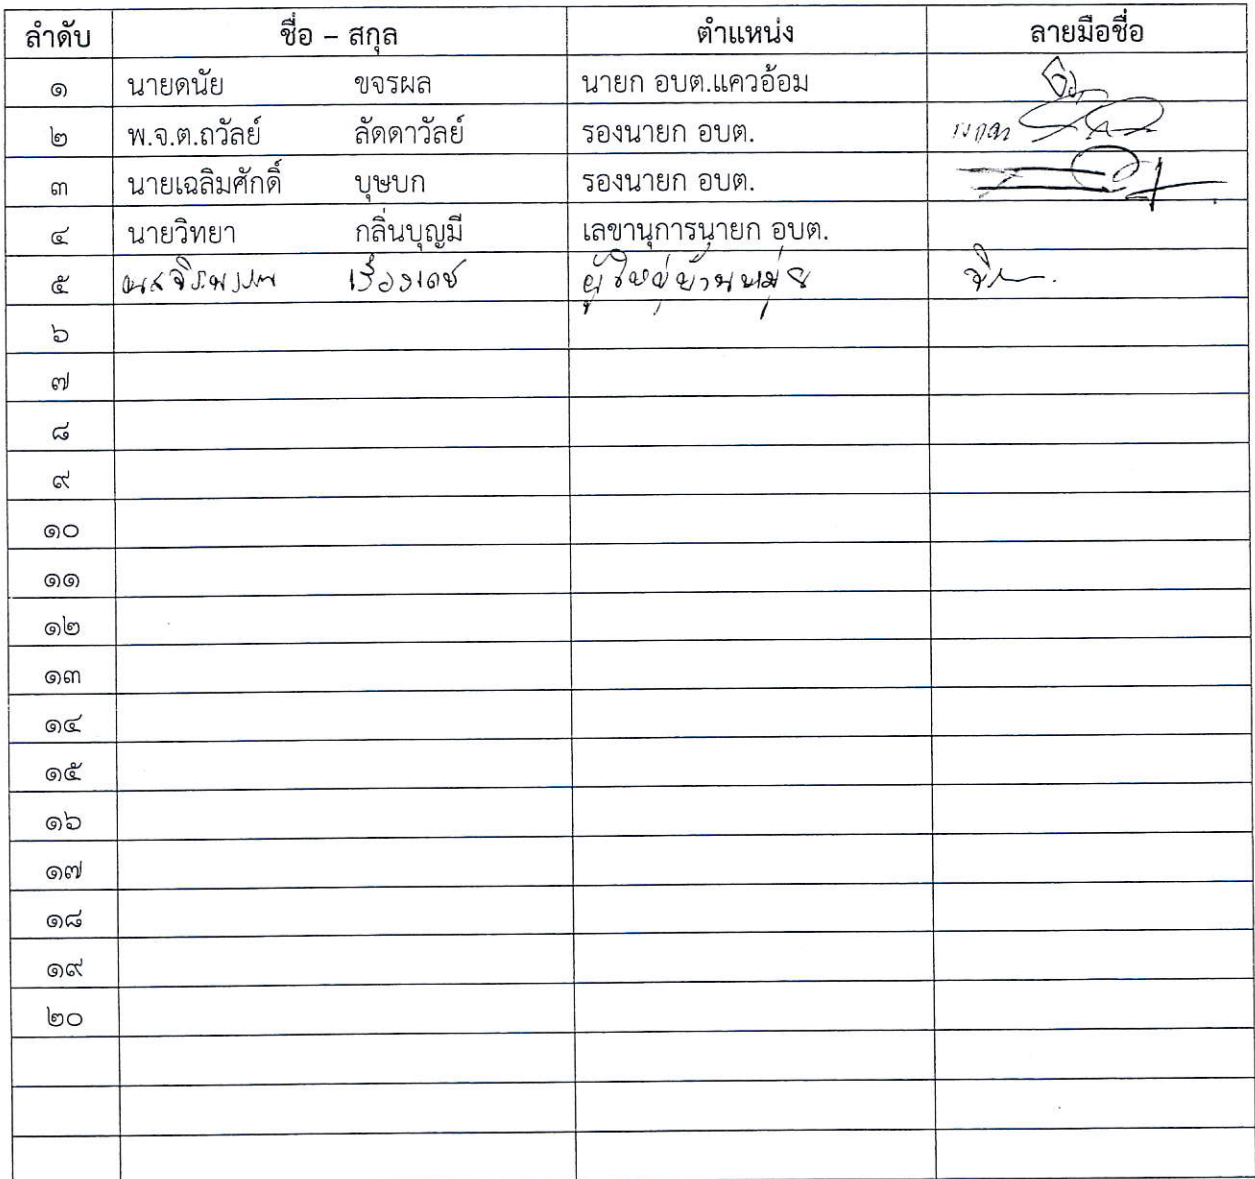 ลำดับ ชื่อ – สกุล ตำแหน่ง ลายมือชื่อ
๑ นายดนัย ขจรผล นายก อบต.แควอ้อม
๒ พ.จ.ต.ถวัลย์ ลัดดาวัลย์ รองนายก อบต.
๓ นายเฉลิมศักดิ์ บุษบก รองนายก อบต.
๔ นายวิทยา กลิ่นบุญมี เลขานุการนายก อบต.
๕ เรืองเดช ผู้ใหญ่บ้านหมู่
๖
๗
๘
๙
๑๐
๑๑
๑๒
๑๓
๑๔
๑๕
๑๖
๑๗
๑๘
๑๙
๒๐